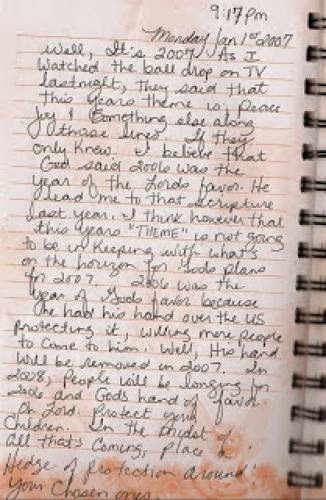 9:17pm
Monday Jan 1st 2007
Well, It's 2007. As I
watched the ball drop on TV
lastnight, they said that
this years theme is, Peace
Joy & Something else along
those lines. If they
only knew. I believe that
God said 2006 was the
year of the Lords favor. He
lead me to that scripture
last year. I think however that
this years "THEME" is not going
to be in Keeping with what's
on the horizon for Gods plans
for 2007. 2006 was the
year of Gods favor because
he had his hand over the US
protecting it, willing more people
to come to him. Well, His hand
will be removed in 2007. In
2008, people will be longing for
2006 and Gods hand of favor.
Oh Lord. Protect your
Children. In the midst of
all that's Coming, place a
Hedge of protection around
Your Chosen ones.